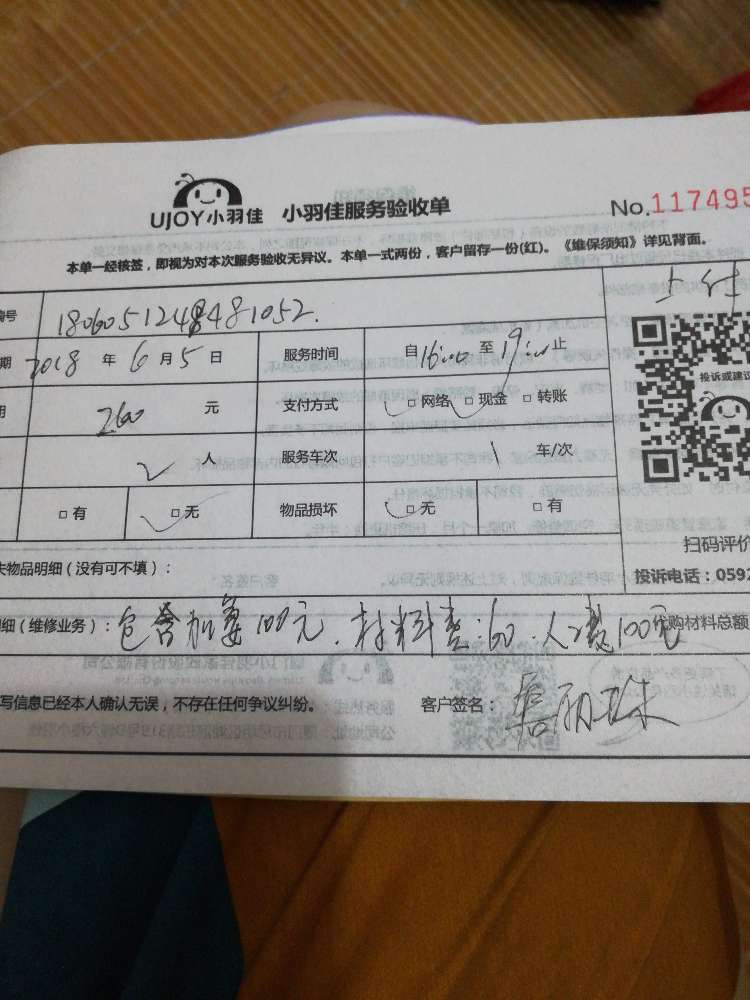 UJOY小羽佳 小羽佳服务验收单 No.117495
本单一经核签，即视为对本次服务验收无异议。本单一式两份，客户留存一份(红)。《维保须知》详见背面。
编号 1806051248481052.
期 2018 年 6 月 5 日 服务时间 自16:00 至 19:00 止
投诉或建议
260 元 支付方式 □网络 □现金 □转账
2 人 服务车次 1 车/次
□有 □无 物品损坏 □无 □有
扫码评价
失物品明细（没有可不填）： 投诉电话：0592
细（维修业务）：包含加氟100元.材料费:60.人工费100元 代购材料总额
写信息已经本人确认无误，不存在任何争议纠纷。 客户签名：